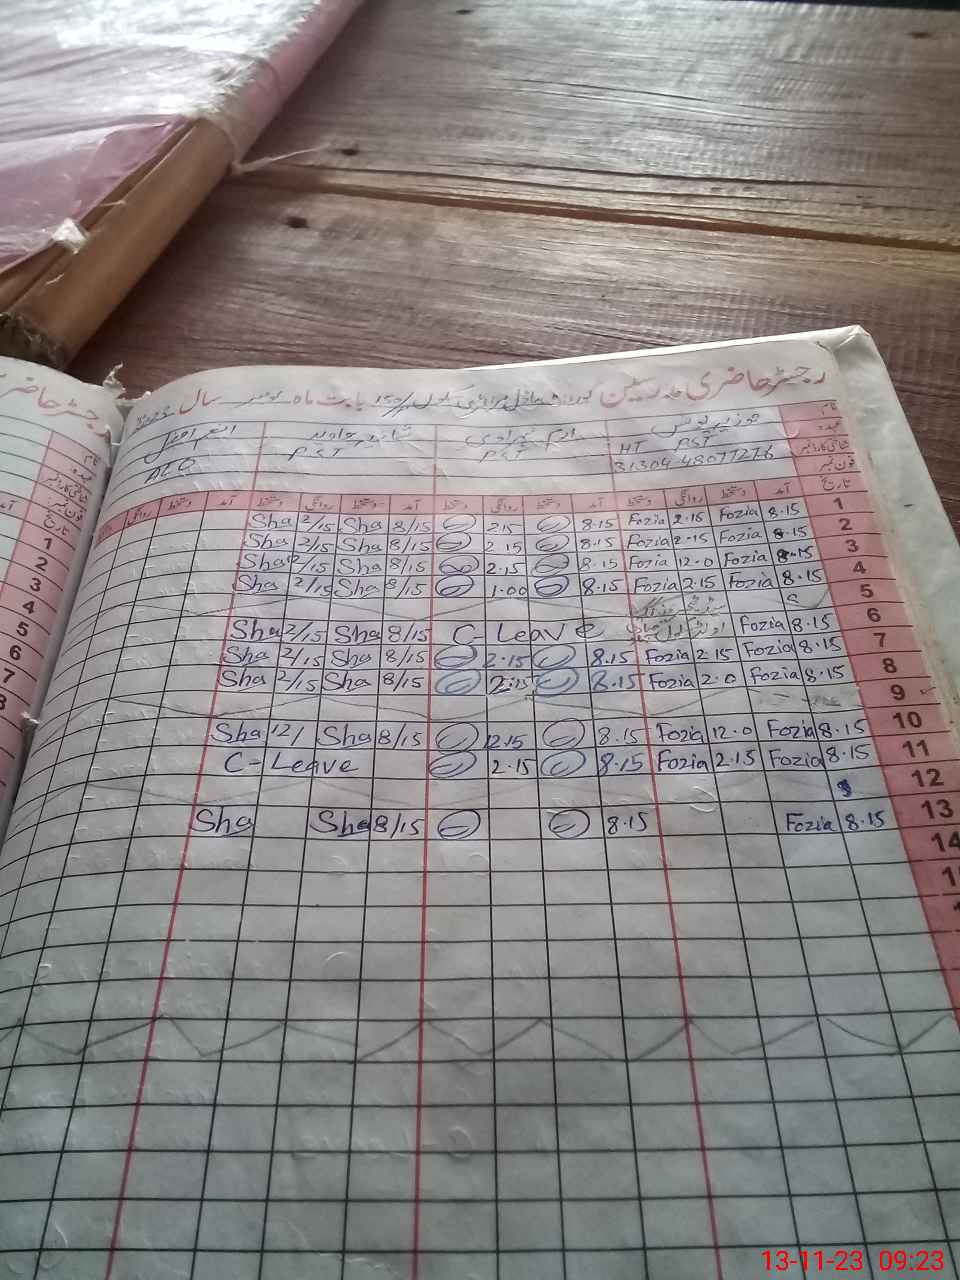 رجسٹر حاضری مدرسین گورنمنٹ ماڈل پرائمری سکول بابت ماہ نومبر سال 2023
نام فوزیہ یونس
عہدہ HT PST PST PST
شناختی کارڈ نمبر 31304-4807727-6
فون نمبر
تاریخ آمد دستخط روانگی دستخط آمد دستخط روانگی دستخط آمد دستخط روانگی دستخط آمد دستخط روانگی
1 8.15 Fozia 2.15 Fozia 8.15 2.15 8/15 Sha 2/15 Sha
2 8.15 Fozia 2.15 Fozia 8.15 2.15 8/15 Sha 2/15 Sha
3 8.15 Fozia 12.0 Fozia 8.15 2.15 8/15 Sha 2/15 Sha
4 8.15 Fozia 2.15 Fozia 8.15 1.00 8/15 Sha 2/15 Sha
5
6 8.15 Fozia C-Leave 8/15 Sha 2/15 Sha
7 8.15 Fozia 2.15 Fozia 8.15 2.15 8/15 Sha 2/15 Sha
8 8.15 Fozia 2.0 Fozia 8.15 2.15 8/15 Sha 2/15 Sha
9
10 8.15 Fozia 12.0 Fozia 8.15 12.15 8/15 Sha 12/ Sha
11 8.15 Fozia 2.15 Fozia 8.15 2.15 C-Leave
12
13 8.15 Fozia 8.15 8/15 Sha Sha
14
رجسٹر حاضر
نام
عہدہ
شناختی کارڈ نمبر
فون نمبر
تاریخ
1
2
3
4
5
6
7
8
13-11-23 09:23